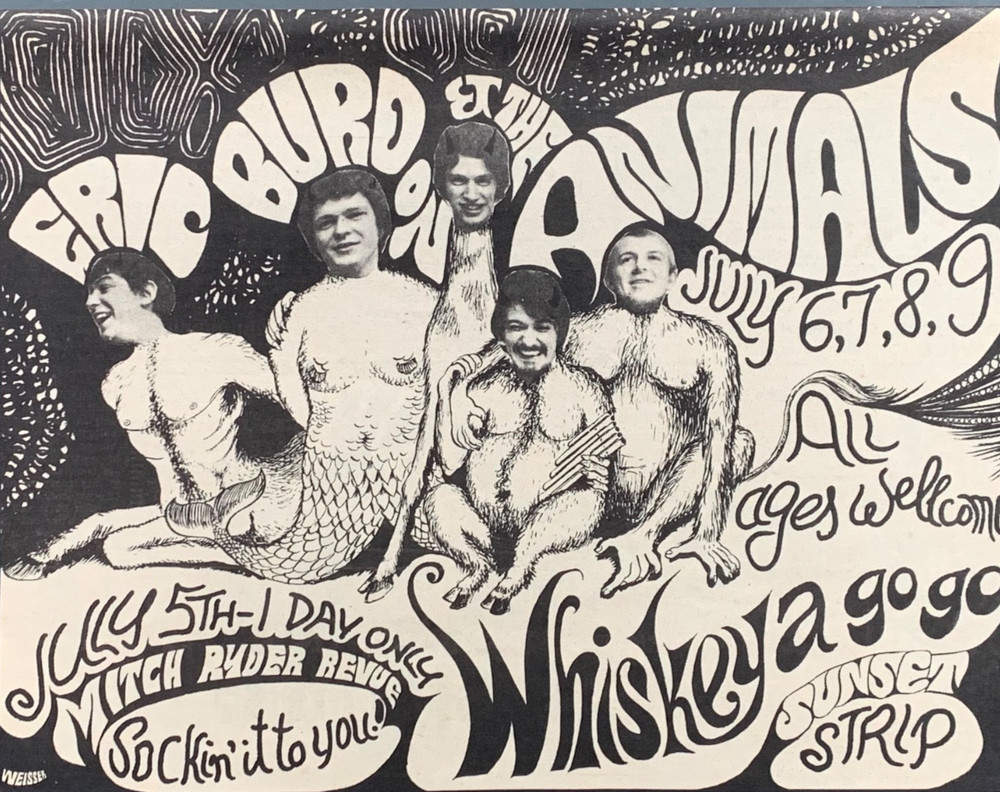 ERIC BURDON ET THE ANIMALS
JULY 6,7,8,9
All
ages wellcome
JULY 5TH-1 DAY ONLY
MITCH RYDER REVUE
Sockin' it to you!
Whiskey a go go
SUNSET
STRIP
WEISSER